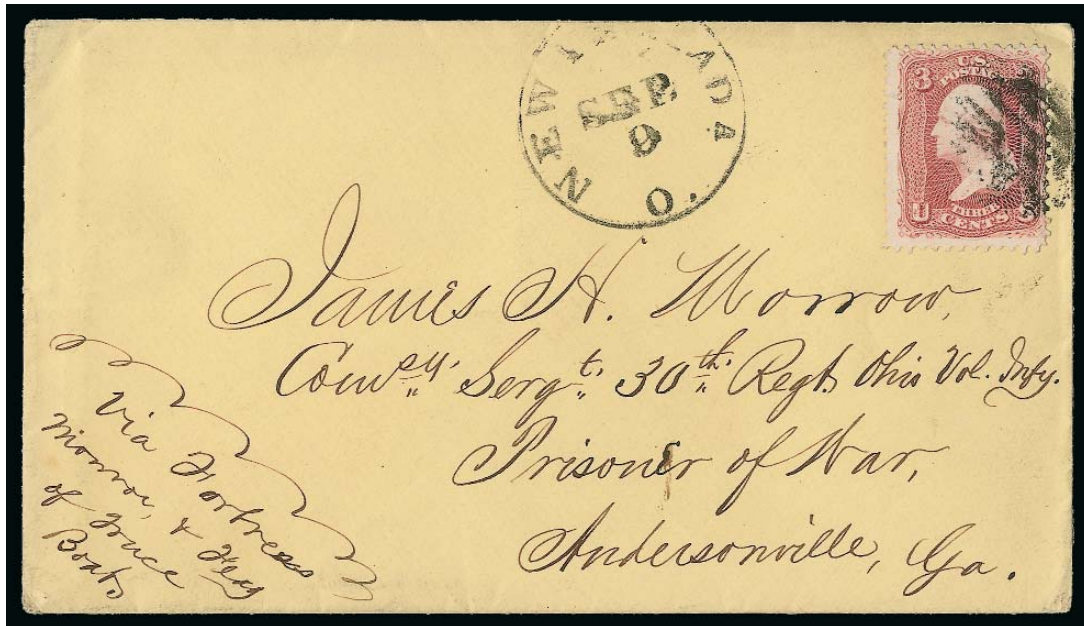 NEW ADA O.
SEP
9
U.S.
POSTAGE
3
U
THREE
CENTS
James H. Morrow,
Comsy. Sergt. 30th. Regt. Ohio Vol. Infy.
Prisoner of War,
Andersonville, Ga.
Via Fortress
Monroe, & Flag
of Truce
Boat.